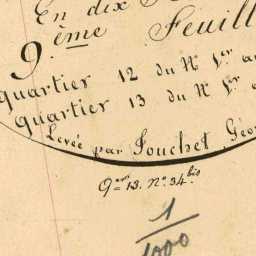 En dix
9.ème Feuill
quartier 12 du N° 1er au
quartier 13 du N° 1er a
Levée par Fouchet, Géo
Qer 13. N° 34 bis
1
1000